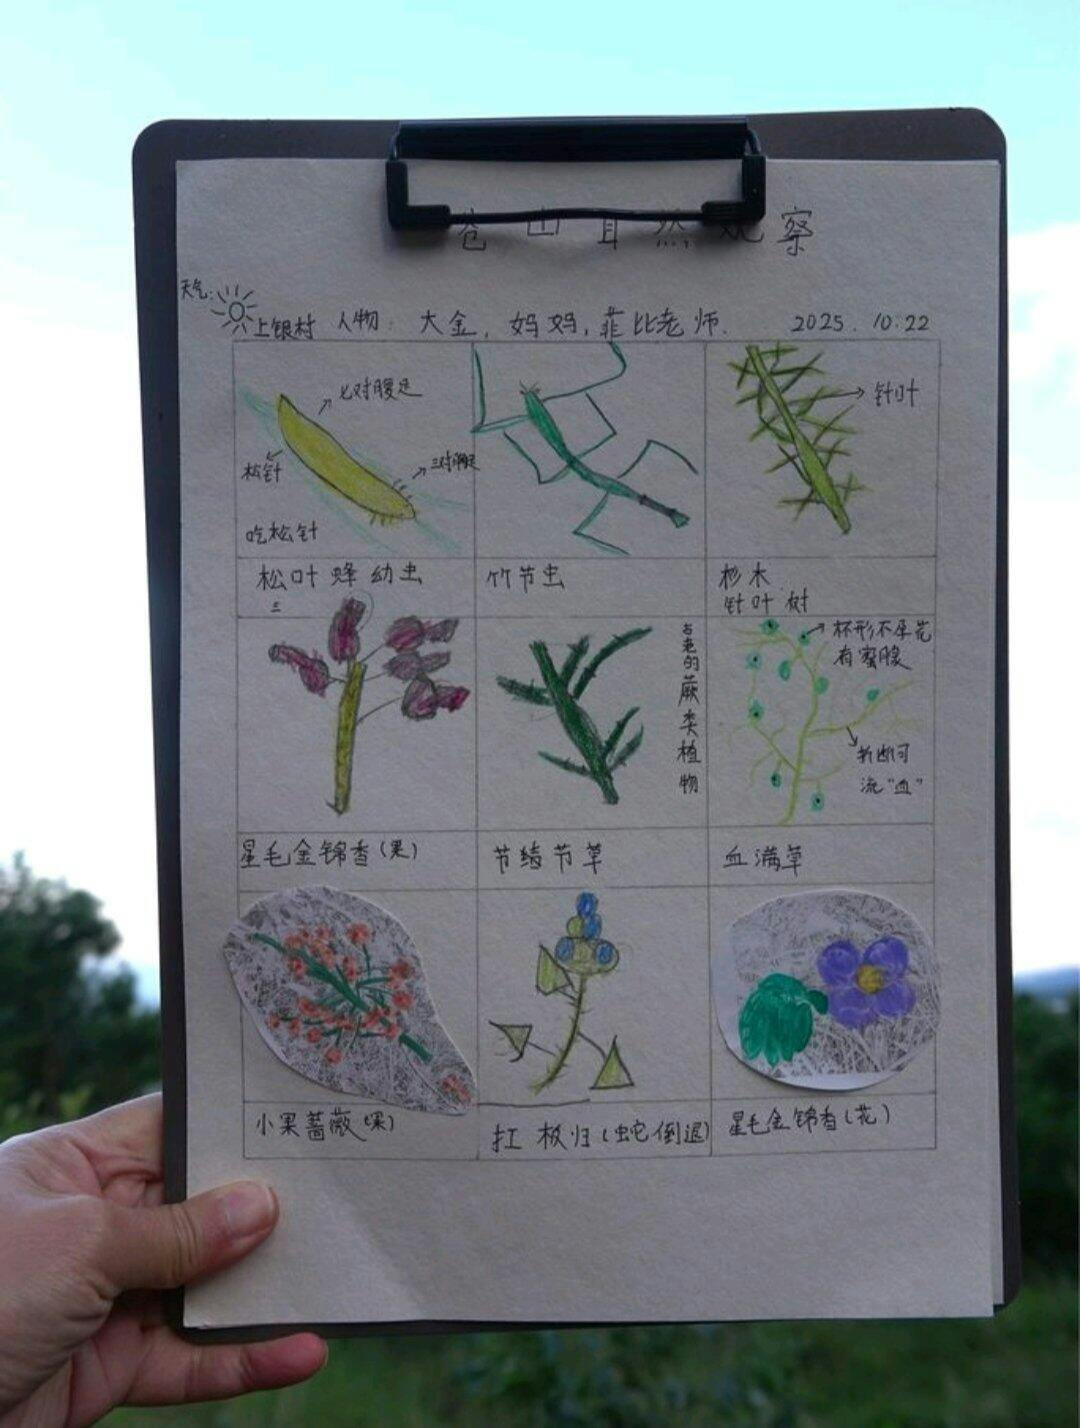 苍山自然观察
天气:
上银村 人物: 大金, 妈妈, 菲比老师. 2025. 10.22
七对腹足
松针
三对胸足
吃松针
针叶
松叶蜂幼虫
竹节虫
杉木
针叶树
古老的蕨类植物
杯形不孕花
有蜜腺
折断可
流“血”
星毛金锦香(果)
节节草
血满草
小果蔷薇(果)
扛板归(蛇倒退)
星毛金锦香(花)